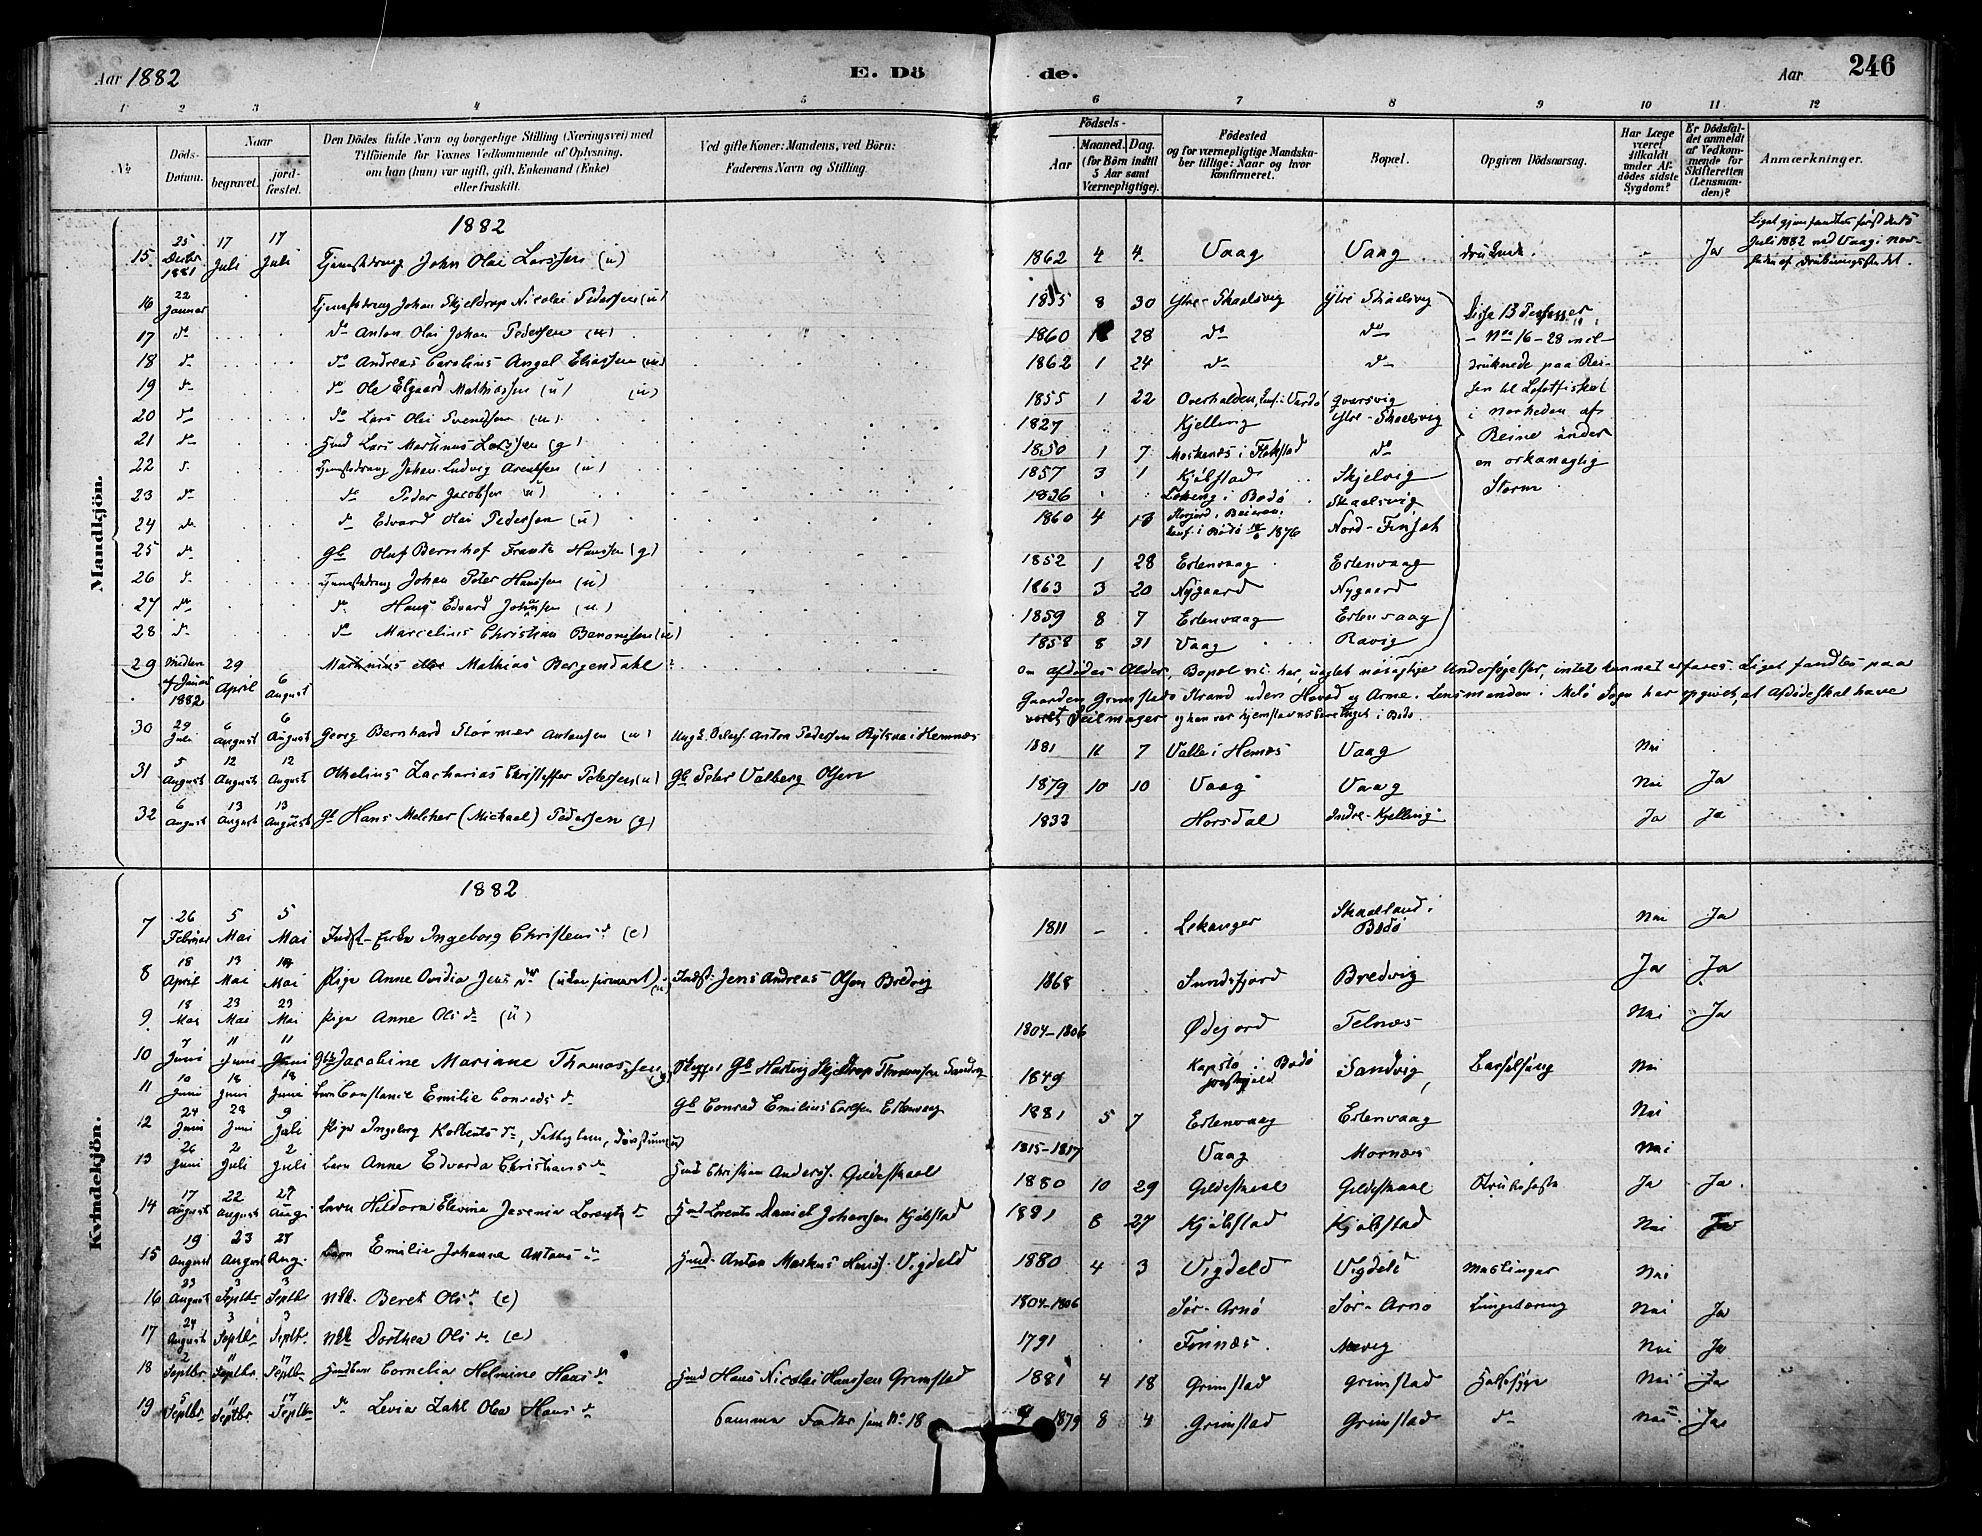 Aar 1882 E. Döde. Aar 246
1 2 3 4 5 6 7 8 9 10 11 12
№ Döds-Datum. Naar begravet. jord-fæstet. Den Dödes fulde Navn og borgerlige Stilling (Næringsvei) med Tilföiende for Voxnes Vedkommende af Oplysning, om han (hun) var ugift, gift, Enkemand (Enke) eller fraskilt. Ved gifte Koner: Mandens, ved Börn: Faderens Navn og Stilling. Födsels- Aar Maaned. Dag. (for Börn indtil 5 Aar samt Værnepligtige). Födested og for værnepligtige Mandskaber tillige: Naar og hvor konfirmeret. Bopæl. Opgiven Dödsaarsag. Har Læge været tilkaldt under Afdödes sidste Sygdom? Er Dödsfaldet anmeldt af Vedkommende for Skifteretten (Lensmanden)? Anmærkninger.
Mandkjön.
1882
15 25 Decbr 1881 17 Juli 17 Juli Tjenestedreng John Olai Larssen (u) 1862 4 4 Vaag Vaag druknede. Ja Liget gjenfandtes først den 15 Juli 1882 ved Vaag i Nærheden af Drukningsstedet.
16 22 Januar Tjenestedreng Johan Skjeldrop Nicolai Pedersen (u) 1855 8 30 Ytre-Skaalsvig Ytre Skaalsvig Disse 13 Personer
17 do do Anton Olai Johan Pedersen (u) 1860 28 do do No 16-28 incl
18 do do Andreas Carolius Angel Eliassen (u) 1862 1 24 do do druknede paa Rei-
19 do do Ole Elgaard Mathiassen (u) (u) 1855 1 22 Overhalden, Vardø Qvarsvig sen til Lofotfisket
20 do do Lars Olai Svendsen (u) 1827 Kjelling Ytre-Skaalsvig i Nærheden af
21 do Hmd Lars Martinus Larssen (g) 1850 1 7 Moskenæs i Flakstad do Reine under
22 do Tjenestedreng Johan Ludvig Arentsen (u) 1857 3 1 Kjøbstad Skjelvig en orkanagtig
23 do do Peder Jacobsen (u) 1836 i Bodø Skaalsvig Storm
24 do do Edvard Olai Pedersen (u) 1860 4 13 Storjord i Beieren, konf. i Bodø 1876 Nord-Finsæt
25 do Gb Oluf Bernhof Frants Hanssen (g) 1852 1 28 Ertenvaag Ertenvaag
26 do Tjenestedreng Johan Peter Hanssen (u) 1863 3 20 Nygaard Nygaard
27 do do Hans Edvard Johansen (u) 1859 8 7 Ertenvaag Ertenvaag
28 do do Marcelius Christian Benonisen (u) 1858 8 31 Vaag Ravig
29 Midten af Januar 1882 29 April 6 August Martinius eller Mathias Bergendahl Om Afdødes Alder, Bopæl etc. har, uagtet nøiagtige Undersøgelser, intet kunnet erfares. Liget fandtes paa
Gaarden Grimstads Strand uden Hoved og Arme. Lensmanden i Melø Sogn har opgivet, at Afdøde skal have
været Seilmager og han var hjemstavnsberettiget i Bodø.
30 29 Juli 6 August 6 August Georg Bernhard Størmer Antonsen (u) Ungk. Anton Pedersen i Hemnæs 1881 11 7 Valle i Hemnæs Vaag Nei
31 5 August 12 August 12 August Othelius Zacharias Christoffer Petersen (u) Gb Peter Valberg Olsen 1879 10 10 Vaag Vaag Nei Ja
32 6 August 13 August 13 August Gb Hans Melcher (Michael) Pedersen (g) 1833 Horsdal Indre-Kjelling Ja Ja
Kvindekjön.
1882
7 26 Februar 5 Mai 5 Mai Indst-Enke Ingeborg Christensdr (e) 1811 Lekanger Skaalland i Bodø Nei Ja
8 18 April 13 Mai 14 Mai Pige Anne Ovidia Jensdtr (ukonfirmeret) (u) Indst: Jens Andreas Olsen Bredvig 1868 Sundsfjord Bredvig Ja Ja
9 18 Mai 23 Mai 23 Mai Pige Anne Olsdr (u) 1804-1806 Ødejord Telnæs Nei Ja
10 7 Juni 11 Juni 11 Juni Gbk Jacobine Mariane Thomassen (g) Gb Hartvig Skjeldrop Thomassen Sandvig 1849 i Bodø Sandvig, Barselseng Nei
11 10 Juni 18 Juni 18 Juni Barn Constance Emilie Conradsdr Gb Conrad Emilius Carlsen Ertenvaag 1881 5 7 Ertenvaag Ertenvaag Nei
12 24 Juni 28 Juni 9 Juli Pige Ingeborg dr, Fattiglem, Døvstum (u) 1815-1817 Vaag Mornæs Nei
13 26 Juni 2 Juli 2 Juli Barn Anne Edvarda Christiansdr Hmd Christian Anderss. Gildeskaal 1880 10 29 Gildeskaal Gildeskaal Ja Ja.
14 17 August 22 August 27 Aug. Barn Hildora Elevine Jasenia Lorentsdr Hmd Lorents Daniel Johansen Kjøbstad 1881 8 27 Kjøbstad Kjøbstad Nei Ja
15 19 August 23 August 27 Aug. Barn Emilie Johanna Antonsdr Hmd. Anton Markus Hanss. Vigdeld 1880 4 3 Vigdeld Vigdeld Mæslinger Nei
16 23 August 3 Septbr 3 Septbr Beret Olsdr (e) 1804-1806 Sør-Arnø Sør-Arnø Nei Ja
17 24 August 3 Septbr. 3 Septbr. Dorthea Olsdr. (e) 1791 Finnæs. Nei Ja
18 2 Septbr. 11 Septbr. 17 Septbr. Cornelia Helmine Hansdr Hmd Hans Nicolai Hanssen Grimstad 1881 4 18 Grimstad Grimstad Halssyge Nei Ja
19 5 Septbr 11 Septbr. 17 Septbr do Levia Zahl Olea Hansdr Samme Fader som No 18 1879 8 4 Grimstad Grimstad do Nei Ja